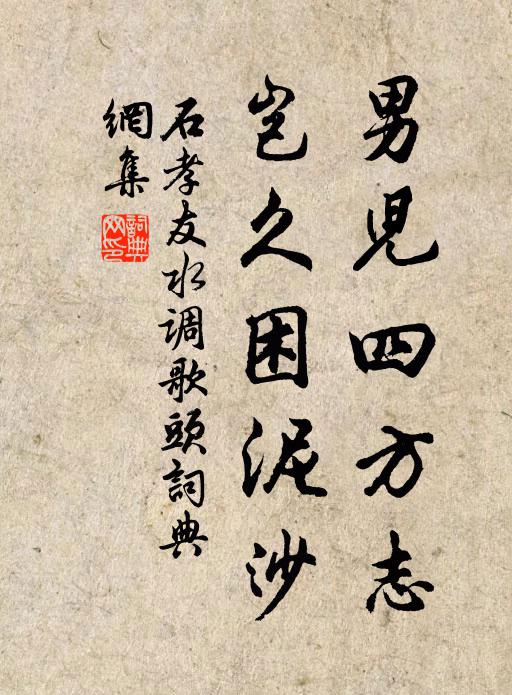 男兒四方志
豈久困泥沙
石孝友水调歌頭詞典
網集
詞典
网印